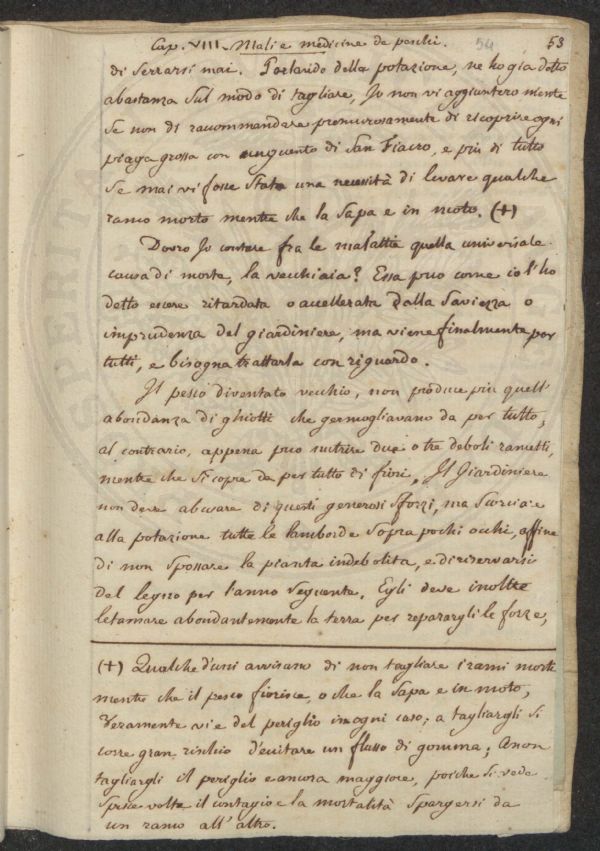 Cap. VIII. Mali e medicine de peschi. 54 53
di serrarsi mai. Parlando della potazione, ne ho gia detto
abastanza sul modo di tagliare, Io non vi aggiuntero niente
se non di raccommandare premurosamente di ricoprire ogni
piaga grossa con unguento di San Fiacro, e più di tutto
se mai vi fosse stata una necessità di levare qualche
ramo morto mentre che la Sapa e in moto. (+)
Dovro Io contare fra le malattie quella universale
causa di morte, la vecchiaia? Essa puo come io l'ho
detto essere ritardata o accellerata dalla Saviezza o
imprudenza del giardiniere, ma viene finalmente per
tutti, e bisogna trattarla con riguardo.
Il pesco diventato vecchio, non produce più quell'
abondanza di ghiotti che germogliavano da per tutto,
al contrario, appena puo nutrire due o tre deboli rametti,
mentre che si copre da per tutto di fiori. Il Giardiniere
non deve abusare di questi generosi sforzi, ma
alla potazione tutte le lamborde sopra pochi occhi, affine
di non spossare la pianta indebolita, e di riservarsi
del legno per l'anno seguente. Egli deve inoltre
letamare abondantemente la terra per repararyli le forze,
(+) Qualched'uni avvisano di non tagliare i rami morti
mentre che il pesco fiorisce, o che la Sapa e in moto,
Veramente vi e del periglio in ogni caso; a tagliargli si
corre gran rischio d'ecitare un flusso di gomma; A non
tagliargli il periglio e ancora maggiore, poiche si vede
spesse volte il contagio e la mortalità spargersi da
un ramo all'altro.